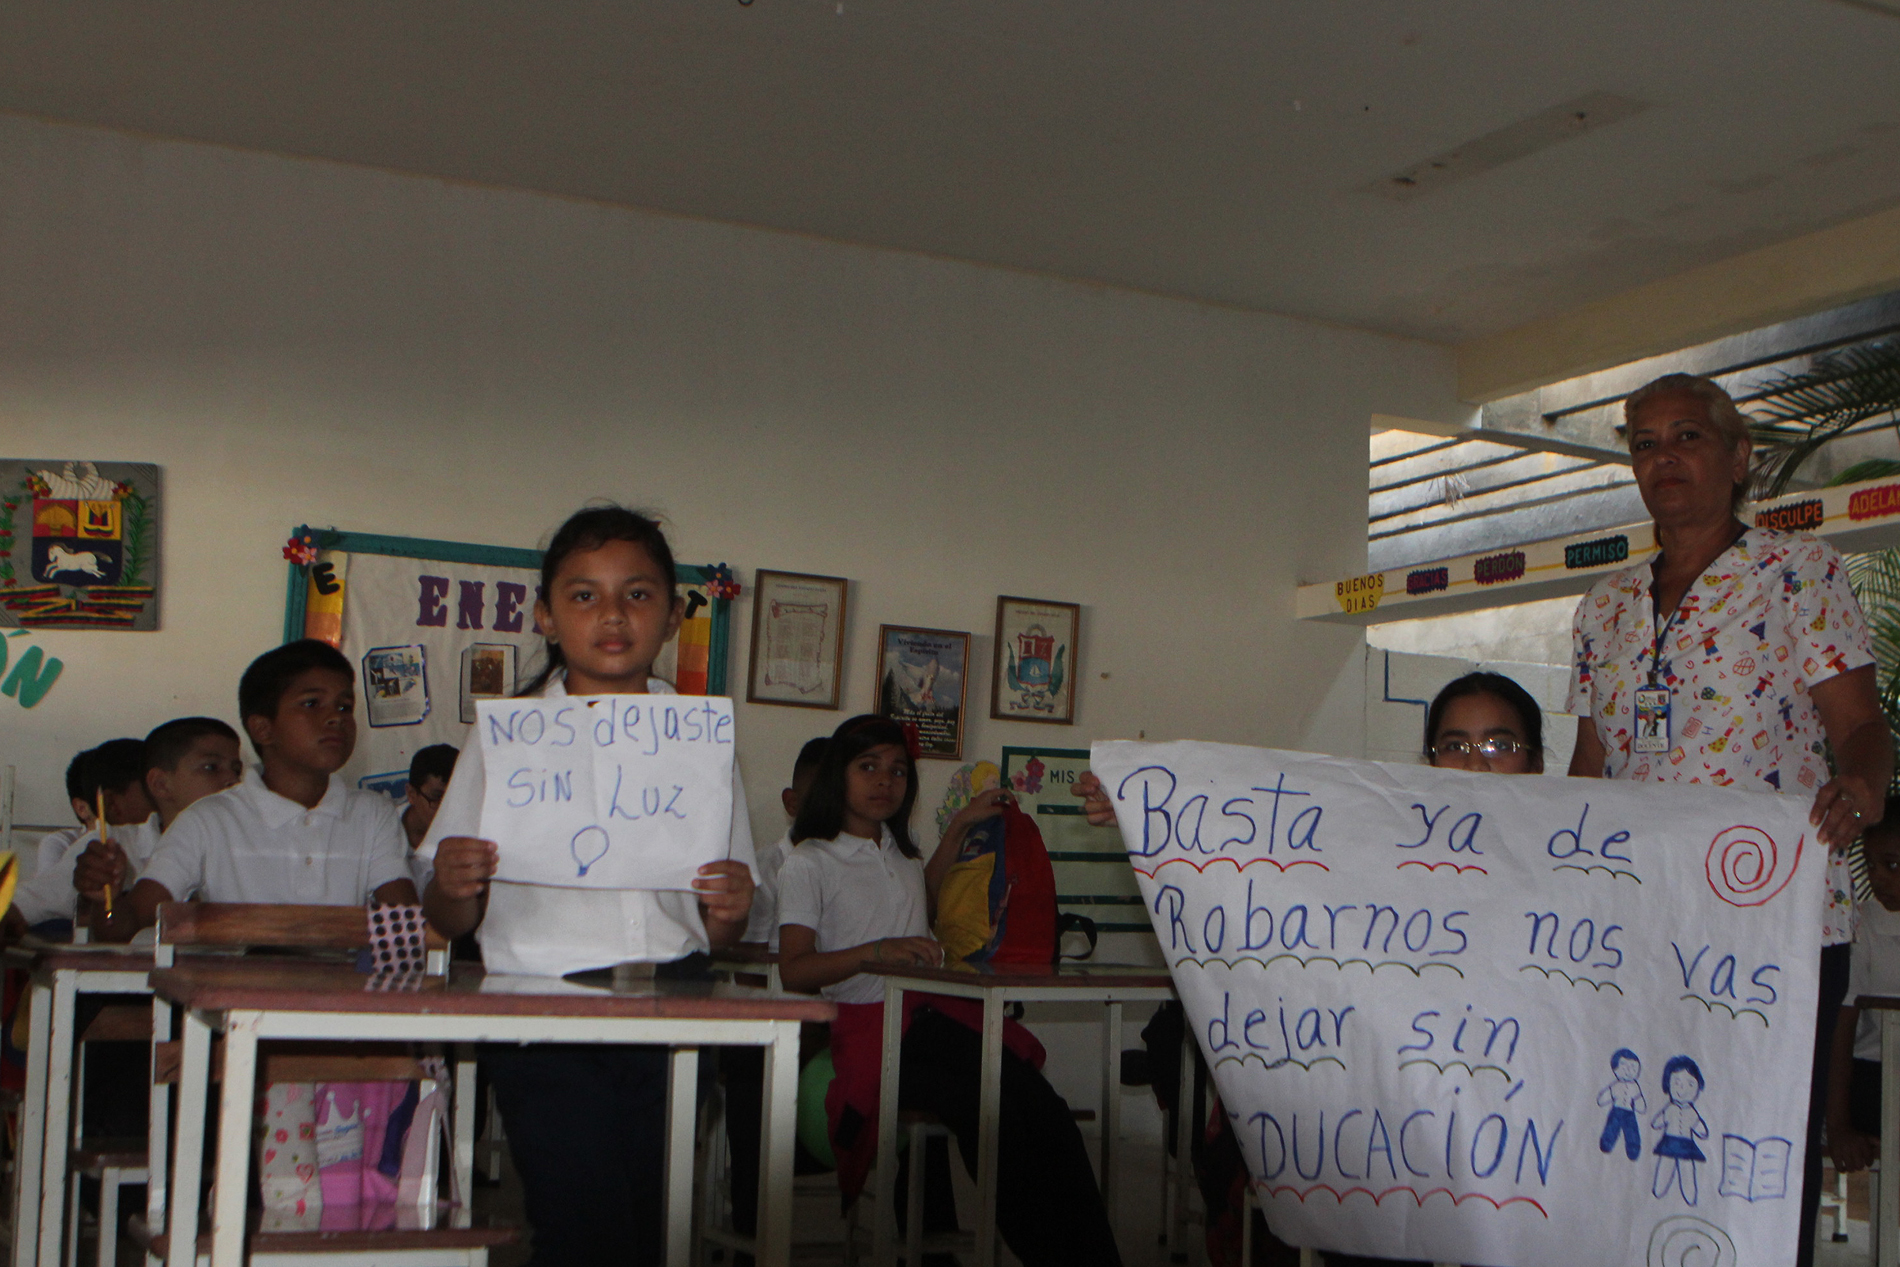 NOS dejaste
SiN LUZ
Basta ya de
Robarnos nos vas
dejar sin
EDUCACIÓN
MIS
BUENOS
DIAS
GRACIAS
PERDÓN
PERMISO
DISCULPE
Viviendo en el
Espíritu
DOCENTE